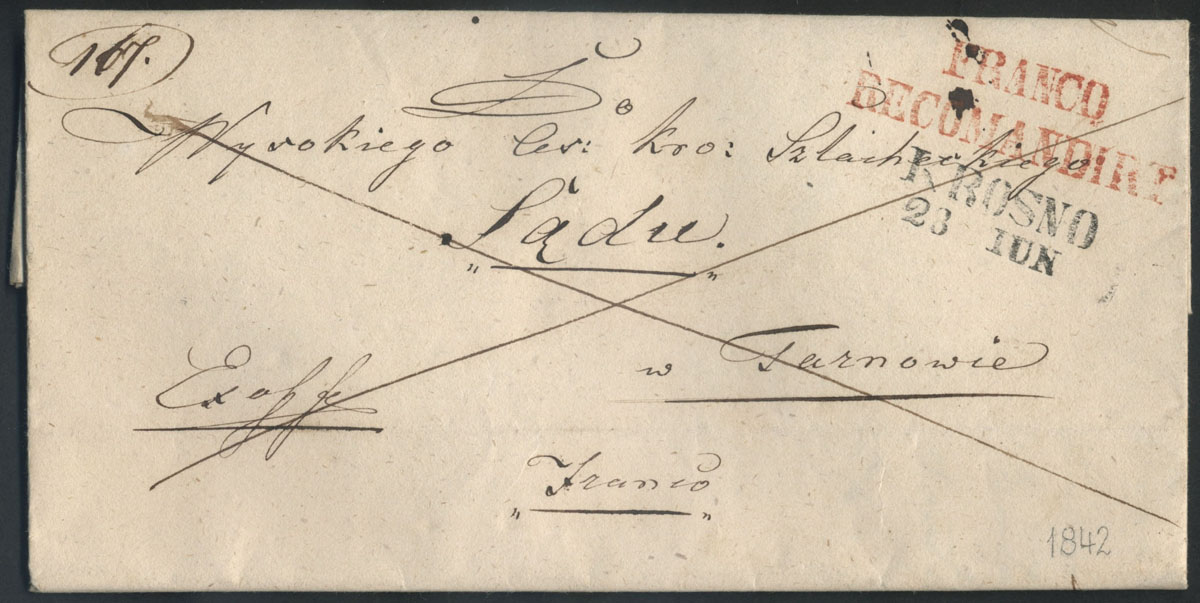 167.
FRANCO
RECOMANDIRT
KROSNO
23 IUN
Do
Wysokiego Ces: Kro: Szlacheckiego
Sądu.
w Tarnowie
Exoffo
Franco
1842